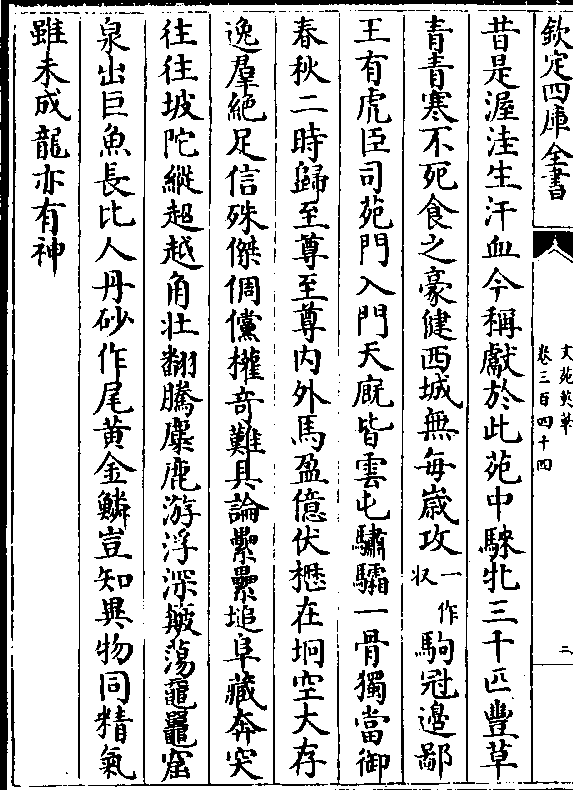 欽定四庫全書
文苑英華
卷三百四十四
二
昔是渥洼生汗血今稱獻於此苑中騋牝三千匹豐草
青青寒不死食之豪健西域無每歳攻一作收駒冠邊鄙
王有虎臣司苑門入門天廐皆雲屯驌驦一骨獨當御
春秋二時歸至尊至尊内外馬盈億伏櫪在坰空大存
逸羣絶足信殊傑倜儻權竒難具論纍纍塠阜藏奔突
往往坡陀縱超越角壯翻騰麋鹿游浮深簸蕩黿鼉窟
泉出巨魚長比人丹砂作尾黄金鱗豈知異物同精氣
雖未成龍亦有神